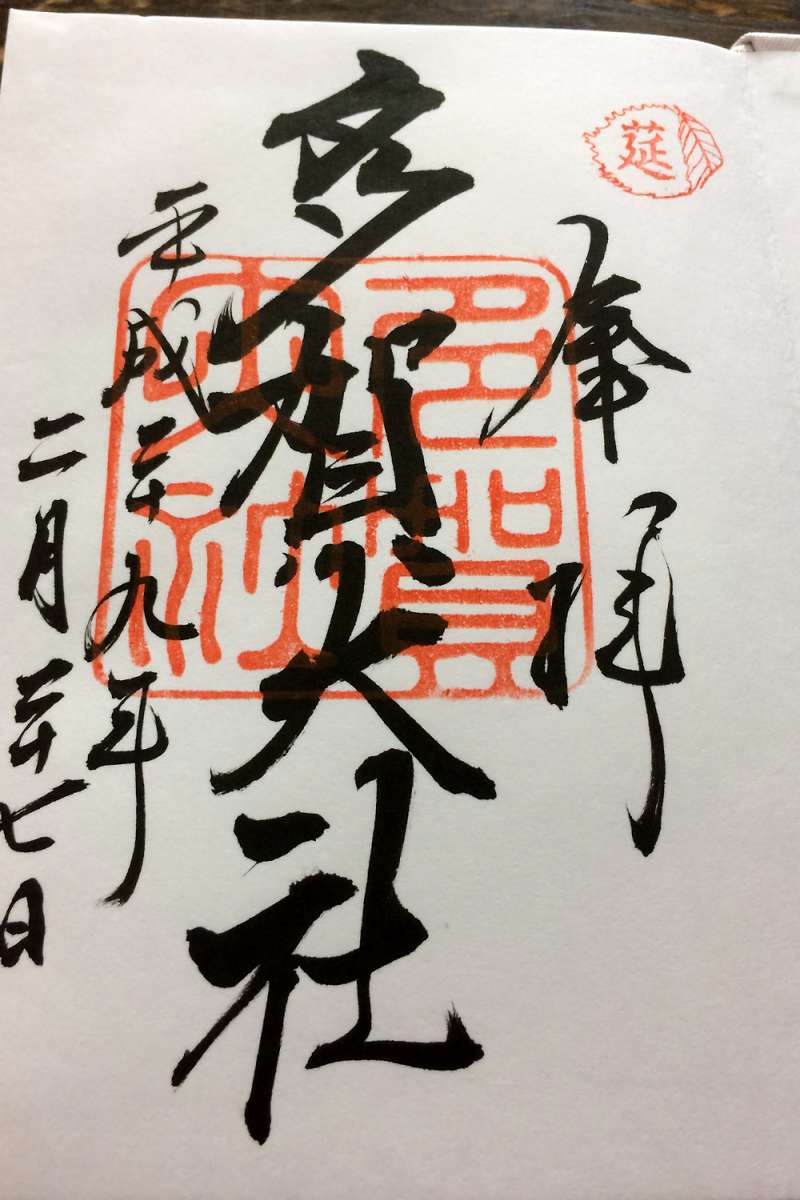 莚
奉拝
多賀大社
多賀
大社
平成二十九年
二月二十七日